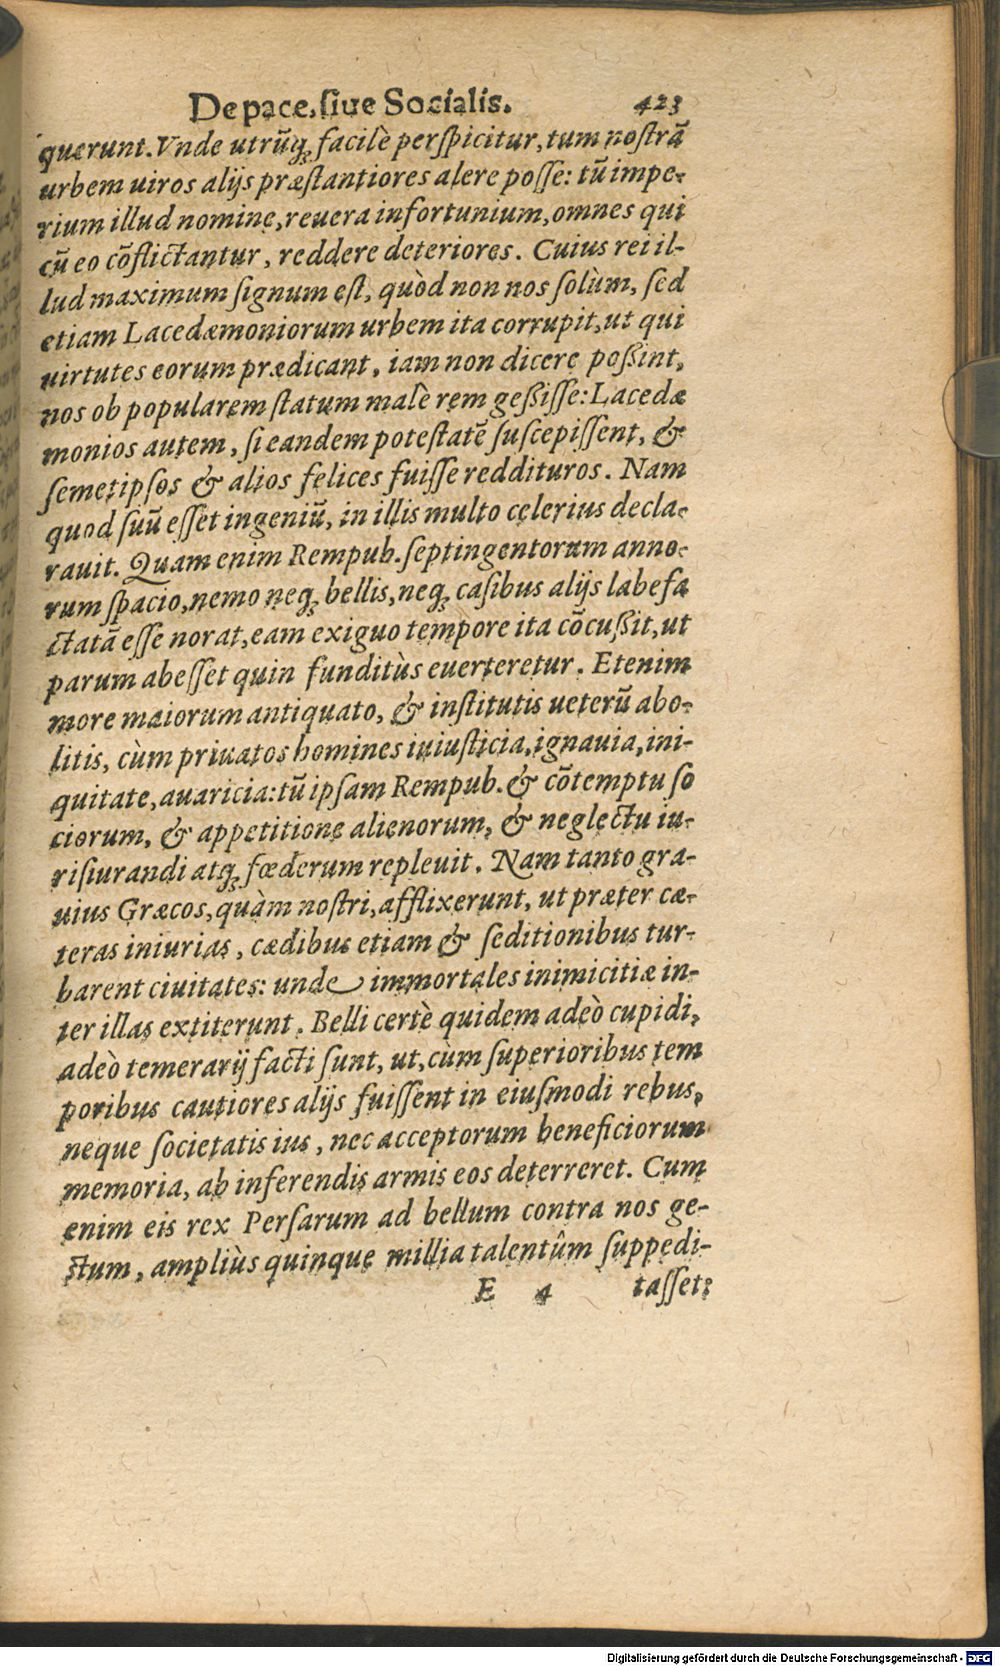 De pace, siue Socialis. 423
querunt. Vnde utrũq; facilè perspicitur, tum nostrã
urbem uiros alijs præstantiores alere posse: tũ impe-
rium illud nomine, reuera infortunium, omnes qui
cũ eo cõflictantur, reddere deteriores. Cuius rei il-
lud maximum signum est, quòd non nos solùm, sed
etiam Lacedæmoniorum urbem ita corrupit, ut qui
uirtutes eorum prædicant, iam non dicere poßint,
nos ob popularem statum malè rem geßisse: Lacedæ
monios autem, si eandem potestatẽ suscepissent, &
semetipsos & alios felices fuisse reddituros. Nam
quod suũ esset ingeniũ, in illis multo celerius decla-
rauit. Quam enim Rempub. septingentorum anno-
rum spacio, nemo neq; bellis, neq; casibus alijs labefa
ctatã esse norat, eam exiguo tempore ita cõcußit, ut
parum abesset quin funditùs euerteretur. Etenim
more maiorum antiquato, & institutis ueterũ abo-
litis, cùm priuatos homines iniusticia, ignauia, ini-
quitate, auaricia: tũ ipsam Rempub. & cõtemptu so
ciorum, & appetitione alienorum, & neglectu iu-
risiurandi atq; fœderum repleuit. Nam tanto gra-
uius Græcos, quàm nostri, afflixerunt, ut præter cæ-
teras iniurias, cædibus etiam & seditionibus tur-
barent ciuitates: unde immortales inimicitiæ in-
ter illas extiterunt. Belli certè quidem adeò cupidi,
adeò temerarij facti sunt, ut, cùm superioribus tem
poribus cautiores alijs fuissent in eiusmodi rebus,
neque societatis ius, nec acceptorum beneficiorum
memoria, ab inferendis armis eos deterreret. Cum
enim eis rex Persarum ad bellum contra nos ge-
stum, ampliùs quinque millia talentûm suppedi-
E 4 tasset;
Digitalisierung gefördert durch die Deutsche Forschungsgemeinschaft - DFG